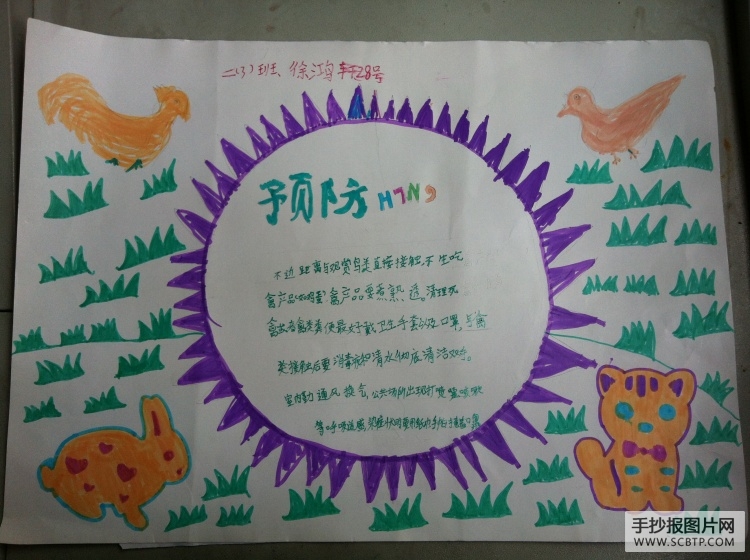 二(3)班、徐鸿轩28号
预防H7N9
不近距离与观赏鸟类直接接触,不生吃
禽产品如鸡蛋,禽产品要煮熟、透。清理死
禽出者禽类粪便最好戴卫生手套以及口罩,与禽
类接触后要消毒液和清水彻底清洁双手。
室内勤通风换气,公共场所出现打喷嚏咳嗽
等呼吸道
手抄报图片网
WWW.SCBTP.COM